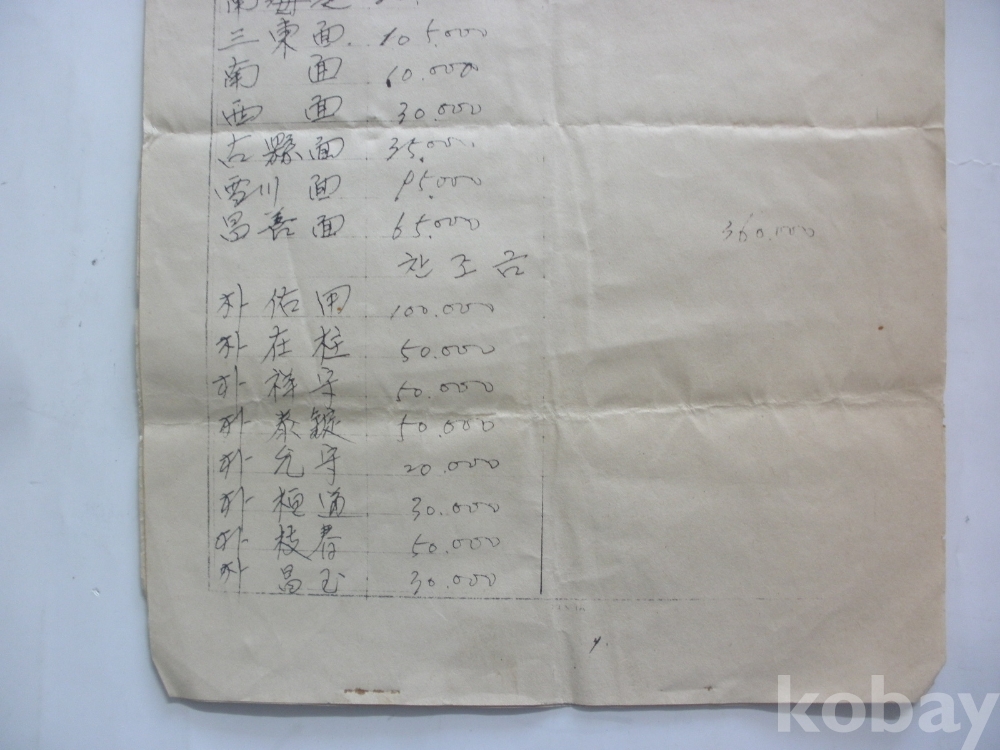 三東面 105.000
南面 60.000
西面 30.000
古縣面 35.000
雪川面 95.000
昌善面 65.000
360.000
찬조금
朴佑用 100.000
朴在柱 50.000
朴祥守 50.000
朴泰錠 50.000
朴允守 20.000
朴桓通 30.000
朴枝春 50.000
朴昌玉 30.000
kobay